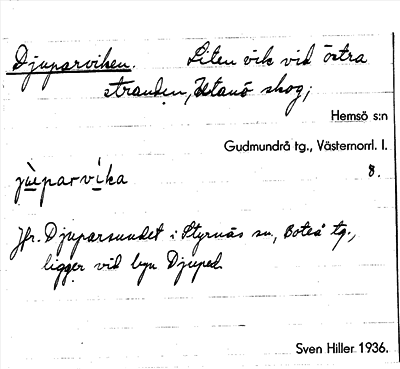 Djuparviken. Liten vik vid östra
stranden, Utanö skog;
Hemsö s:n
Gudmundrå tg., Västernorrl. l.
jùparvika 8.
Jfr. Djuparsundet i Styrnäs sn, Boteå tg.,
ligger vid byn Djuped.
Sven Hiller 1936.